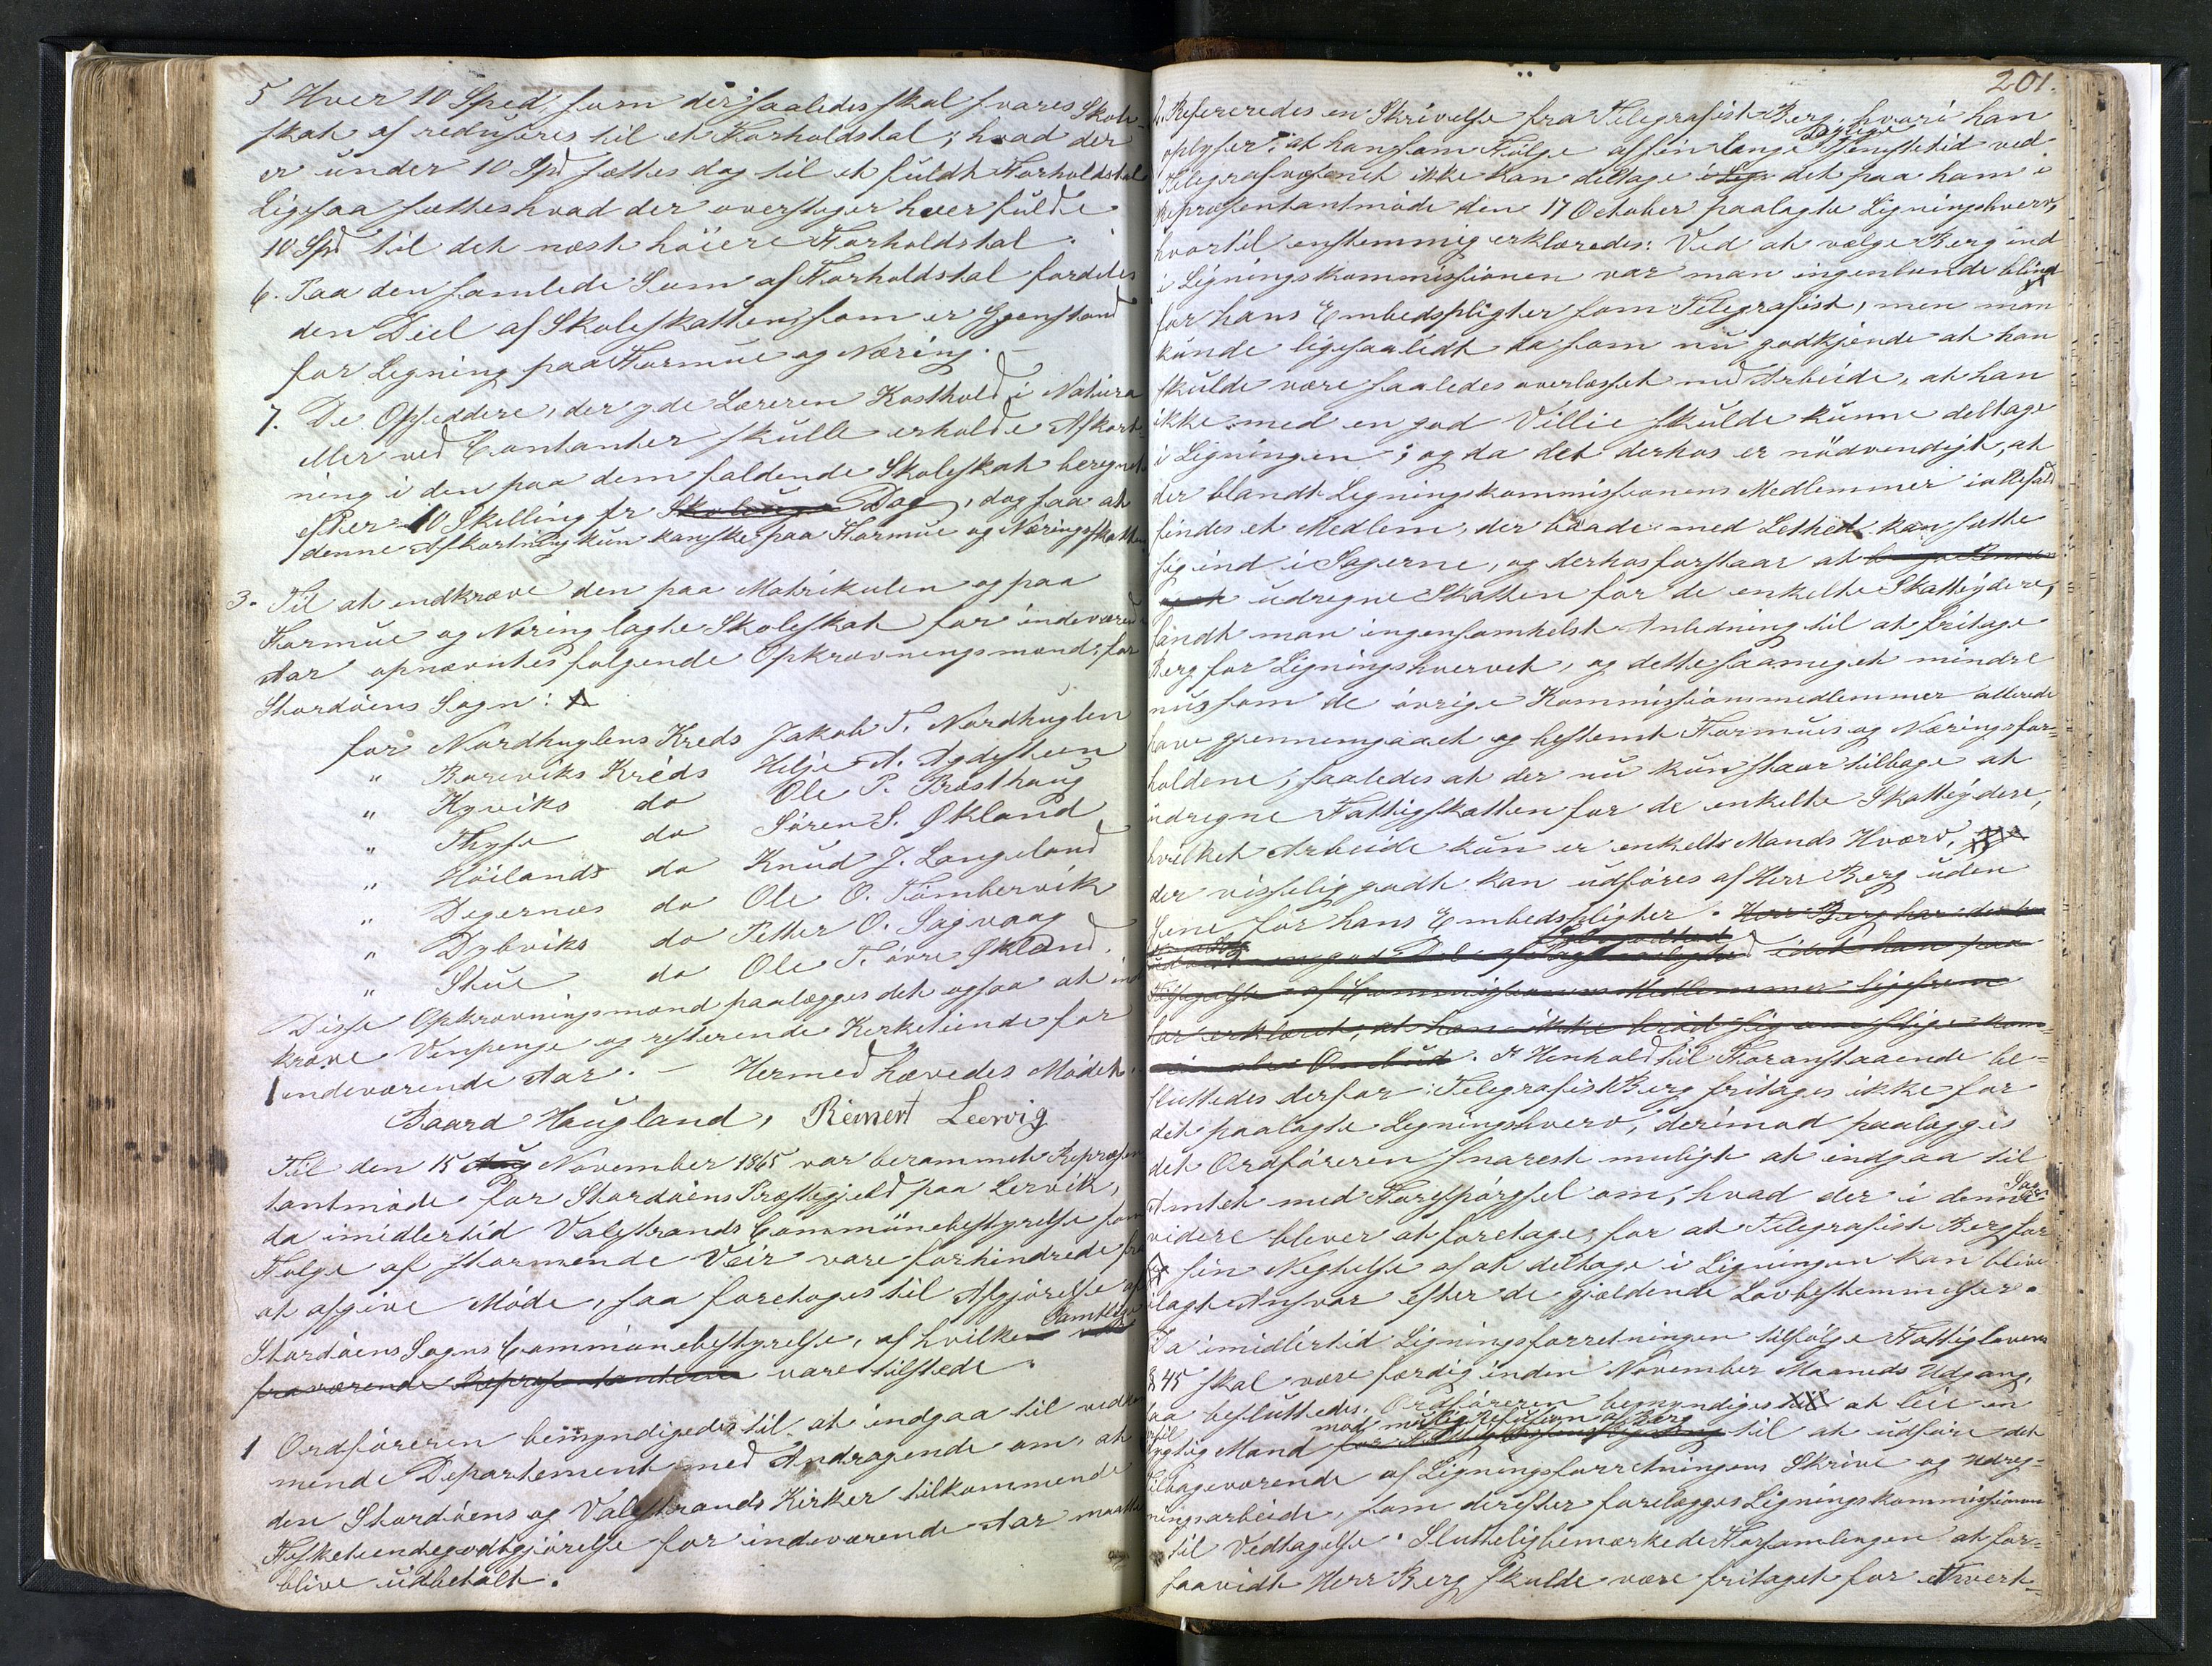 5 Hver 10 Sped, som der saaledes skal svares Skole-
skat af reduseres til et Forholdstal; hvad der
er under 10 Spd sættes dog til et fuldt Forholdstal
Ligesaa sættes hvad der overstiger hver fulde
10 Spd til det næst høiere Forholdstal.
6. Paa den samlede Sum af Forholdstal fordeles
den Deel af Skoleskatten, som er Gjenstand
for Ligning paa Formue og Næring. –
7. De Opsiddere, der yde Læreren Kosthold i Natura
eller ved Contanter skulle erholde Afkort-
ning i den paa dem faldende Skoleskat beregnet
efter 10 Skilling pr Dag, dog saa at
denne Afkortning kun kan ske paa Formue og Næringsskatten.
3. Til at indkræve den paa Matrikulen og paa
Formue og Næring lagte Skoleskat for indeværende
Aar opnævntes følgende Opkrævningsmænd; for
Stordøens Sogn:
for Nordhuglens Kreds Jakob T. Nordhuglen
" Borevikes Kreds Helje A. Agdesteen
" Hyvikes do Ole P. Brosthaug
" Thyse do Søren S. Økland
" Høilands do Knud J. Langeland
" Degernæs do Ole O. Tømbervik
" Dybviks do Petter O. Sagvaag
" Stue do Ole T. øvre Økland.
Disse Opkrævningsmænd paalægges det ogsaa at ind
kræve Venpenge og resterende Kirketiende for
indeværende Aar. – Hermed hævedes Mødet.
Baard Haugland, Reinert Leervig
Til den 15 Aug November 1865 var berammet Repræsen
tantmøde for Stordøens Præstegjeld paa Lervik,
da imidlertid Valestrands Communebestyrelse som
Følge af stormende Veir vare forhindrede fra
at afgive Møde, saa foretoges til Afgjørelse af
Stordøens Sogns Communebestyrelse, af hvilken Samtlige
fraværende Repræsentanterne vare tilstede.
1 Ordføreren bemyndigedes til at indgaa til vedkom
mende Departement med Andragende om, at
den Stordøens og Valestrands Kirker tilkommende
Fisketiendegodtgjørelse for indeværende Aar maatte
blive udbetalt.
201.
2. Refereredes en Skrivelse fra Telegrafist Berg, hvori han
oplyser: at han som Følge af sin lange Daglige Tjenestetid ved
Telegrafvæsenet ikke kan deltage i det paa ham i
Repræsentantmøde den 17 October paalagte Ligningshverv,
hvortil enstemmig erklæredes: Ved at vælge Berg ind
i Ligningskommissionen var man ingenlunde blind
for hans Embedspligter som Telegrafist, men man
kunde ligesaalidt da som nu godkjende at han
skulde være saaledes overlæsset med Arbeide, at han
ikke med en god Villie skulde kunne deltage
i Ligningen; og da det derhos er nødvendigt, at
der blandt Ligningskommissionens Medlemmer iallefald
findes et Medlem, der baade med Lethed kan sætte
sig ind i Sagerne, og derhos forstaar at
udregne Skatten for de enkelte Skatteydere,
fandt man ingensomhelst Anledning til at fritage
Berg for Ligningshvervet, og dette saameget mindre
nu, som de øvrige Kommissionsmedlemmer allerede
have gjennemgaaet og bestemt Formues og Næringsfor-
holdene, saaledes at der nu kun staar tilbage at
udregne Fattigskatten for de enkelte Skatteydere,
hvilket Arbeide kun er enkelt Mands Hværv,
der visselig godt kan udføres af Herr Berg uden
Gene for hans Embedspligter. Herr Berg har
idet han paa
af Commissionens Medlemmer ligefrem
har erklæret, at han ikke brød sig om slige kom-
. I Henhold til Foranstaaende be-
sluttedes derfor: Telegrafist Berg fritages ikke for
det paalagte Ligningshverv, derimod paalægges
det Ordføreren snarest muligt at indgaa til
Amtet med Forespørgsel om, hvad der i denne Sag
videre bliver at foretage, for at Telegrafist Berg for
sin Negtelse af at deltage i Ligningen kan blive
ilagt Ansvar efter de gjældende Lovbestemmelser.
Da imidlertid Ligningsforretningen tilfølge Fattiglovens
§ 45 skal være færdig inden November Maaneds Udgang,
saa besluttedes: Ordføreren bemyndiges til at leie en
mod mulig Refusion af Berg
dygtig Mand til at udføre det
tilbageværende af Ligningsforretningens Skrive og Udreg-
ningsarbeide, som derefter forelægges Ligningskommissionen
til Vedtagelse. Sluttelig bemærkede Forsamlingen at for-
saavidt Herr Berg skulde være fritaget for ethvert-